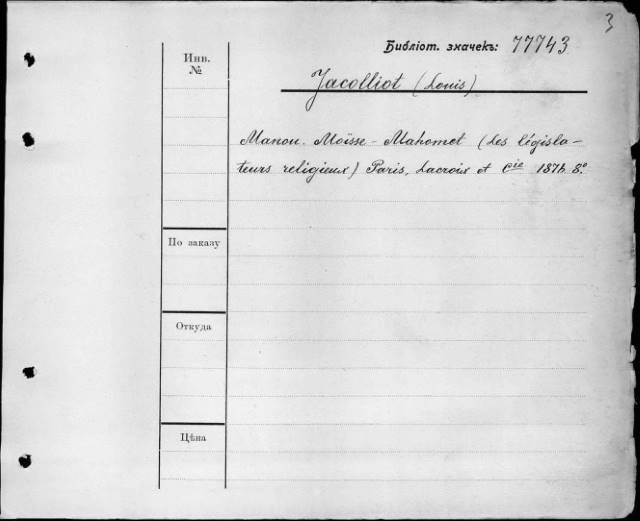 3
Библіот. значекъ: 77743
Инв.
№
Jacolliot (Louis)
Manou. Moïsse - Mahomet (Les législa-
teurs religieux) Paris, Lacroix et Cie
По заказу
Откуда
Цѣна